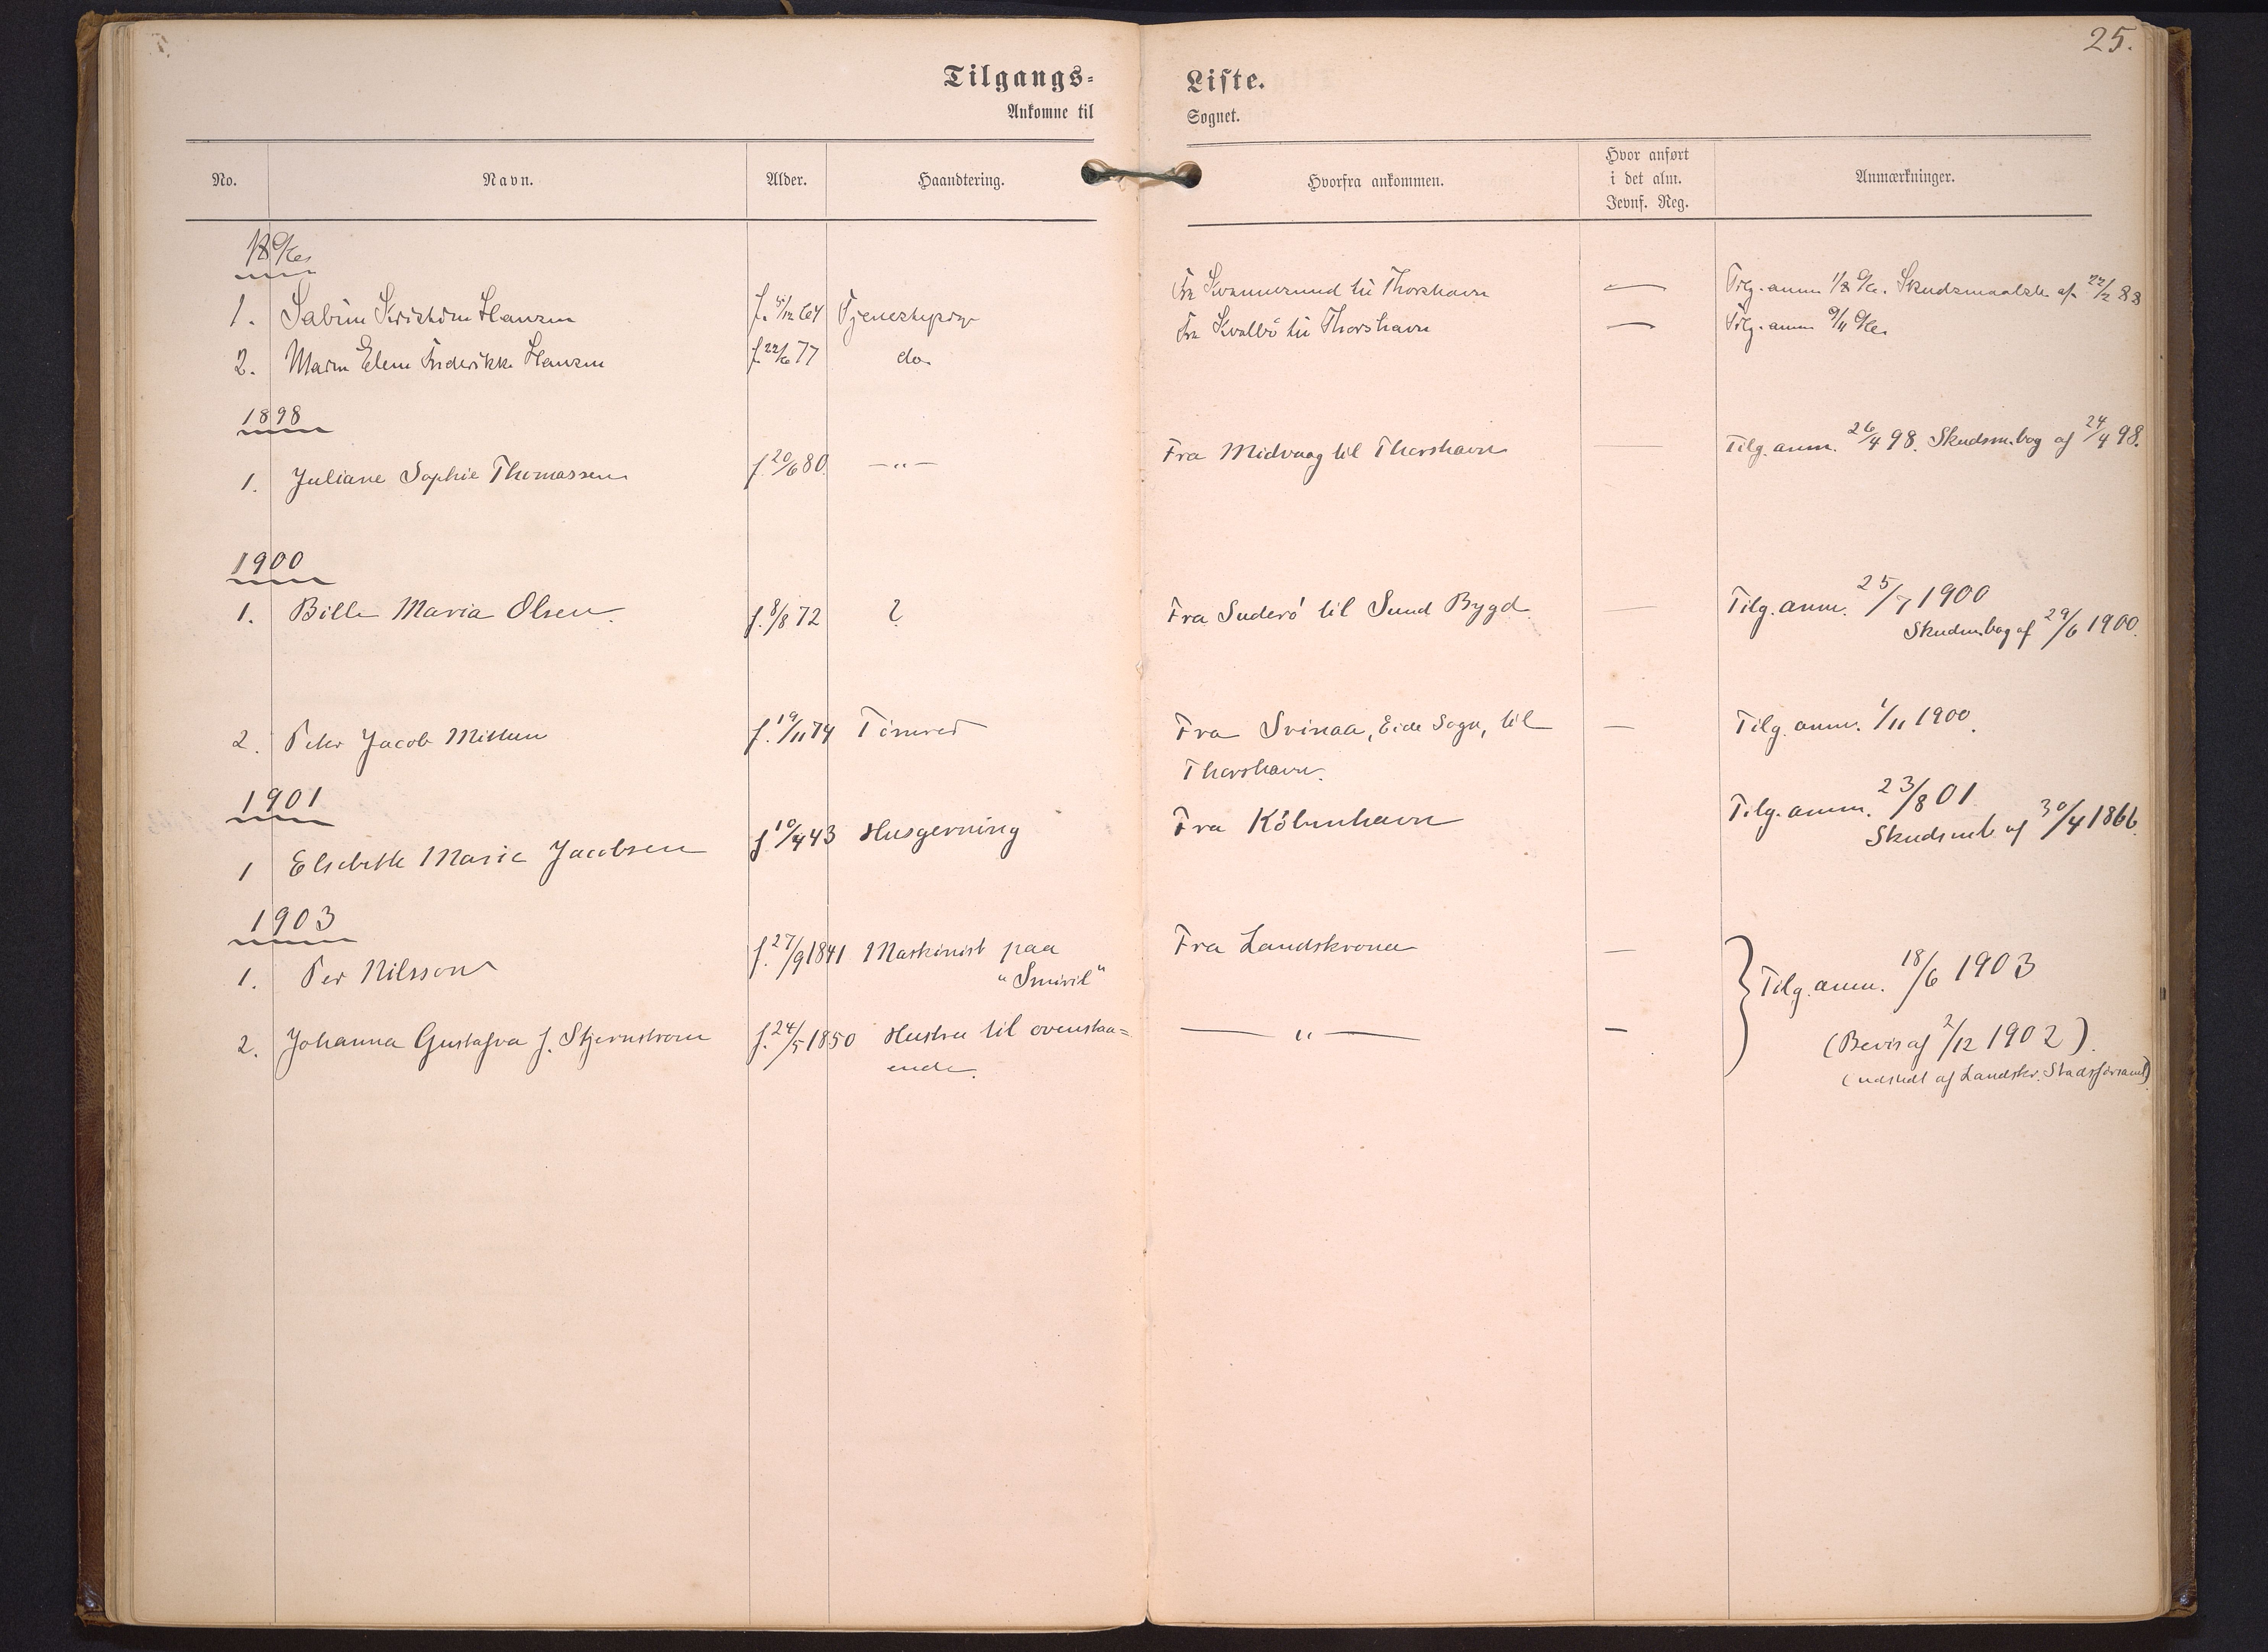 25.
Tilgangs= Liste.
Ankomne til Sognet.
No. Navn. Alder. Haandtering. Hvorfra ankommen. Hvor anført i det alm. Jevnf. Reg. Anmærkninger.
1. Sabine Kristine Hansen f. 5/12 64 Tjenestepige Fra Kvannesund til Thorshavn — Tilg. anm. Skudsmaalsb. af 22/2 88
2. Maren Elene Frederikke Hansen f. 22/6 77 do. Fra Kvalbö til Thorshavn — Tilg. anm.
1898
1. Juliane Sophie Thomassen f. 20/6 80. —"— Fra Midvaag til Thorshavn — Tilg. anm. 26/4 98. Skudsm.bog af 24/4 98.
1900
1. Bille Maria Olsen. f. 8/8 72 ? Fra Suderö til Sund Bygd. — Tilg. anm. 25/7 1900
Skudsm.bog af 29/6 1900.
2. Peter Jacob f. 19/11 74 Tömred Fra Svinaa, Eide Sogn, til — Tilg. anm. 1/11 1900.
Thorshavn.
1901
1 Elsebeth Marie Jacobsen f. 10/4 43 Husgerning Fra Köbenhavn Tilg. anm. 23/8 01.
Skudsmb. af 30/4 1866.
1903
1. Per Nilsson f. 27/9 1841 Maskinist paa Fra Landskrona — Tilg. anm. 18/6 1903
"Smiril"
2. Johanna Gustafva f. Stjernstrom f. 24/5 1850 Hustru til ovenstaa= — " — — (Bevis af 2/12 1902).
ende. (udstedt af Landskr. Stadsförsaml)